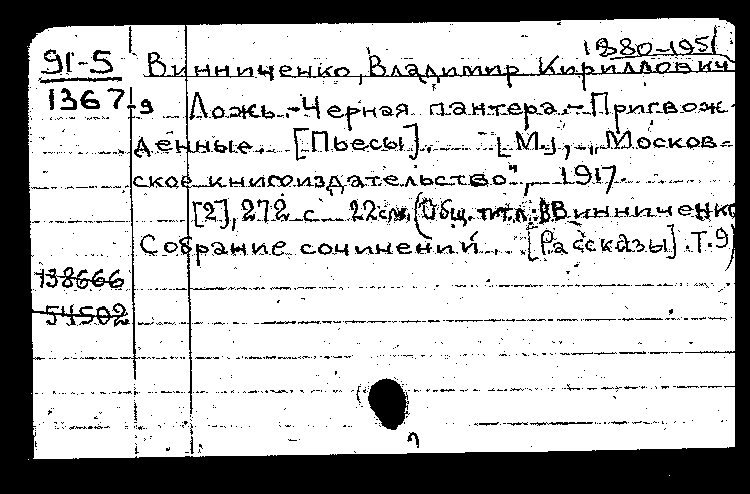 1880-1951
91-5 Винниченко, Владимир Кириллович
1367-9 Ложь.-Черная пантера.-Пригвож-
денные. [Пьесы]. [М.], "Москов-
ское книгоиздательство", 1917.
[2], 272 с 22см. (Общ. тит. л.: Винниченко
Собрание сочинений. [Рассказы]. Т.9)
138666
54502